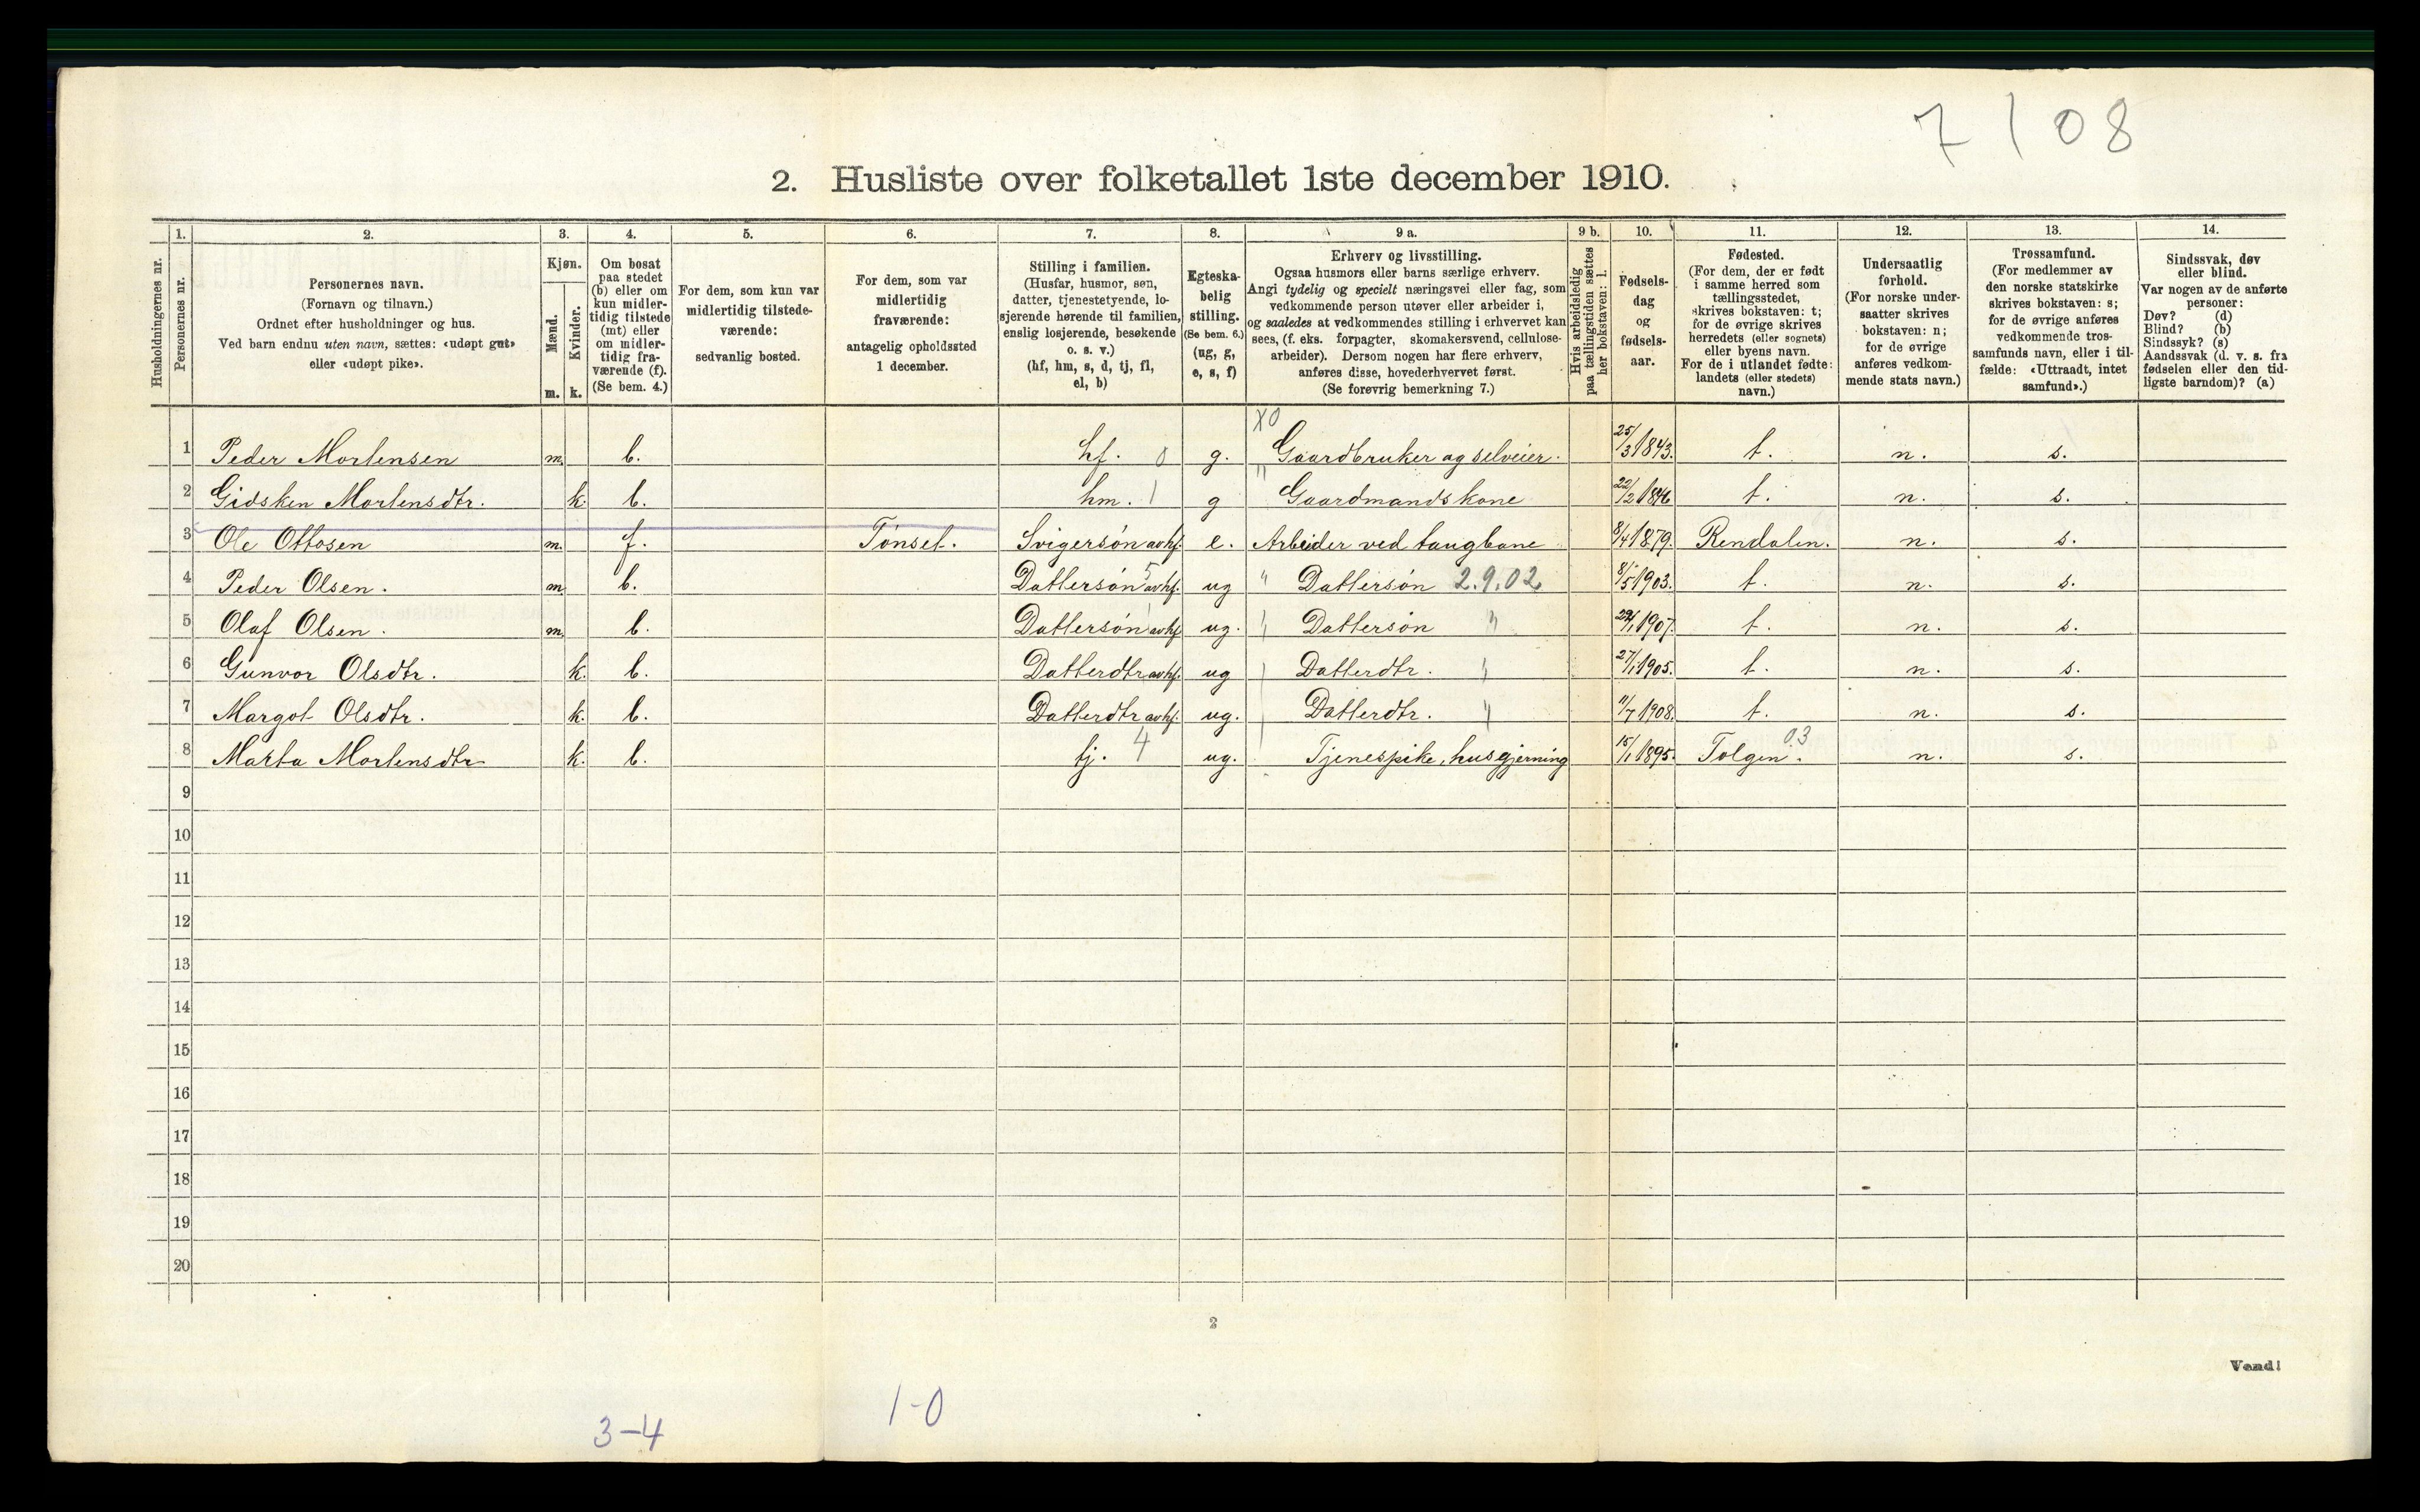 7108
2. Husliste over folketallet 1ste december 1910.
Husholdningernes nr.
1.
Personernes nr.
2.
Personernes navn.
(Fornavn og tilnavn.)
Ordnet efter husholdninger og hus.
Ved barn endnu uten navn, sættes: «udøpt gut»
eller «udøpt pike».
3.
Kjøn.
Mænd.
Kvinder.
m. k.
4.
Om bosat
paa stedet
(b) eller om
kun midler-
tidig tilstede
(mt) eller
om midler-
tidig fra-
værende (f).
(Se bem. 4.)
5.
For dem, som kun var
midlertidig tilstede-
værende:
sedvanlig bosted.
6.
For dem, som var
midlertidig
fraværende:
antagelig opholdssted
1 december.
7.
Stilling i familien.
(Husfar, husmor, søn,
datter, tjenestetyende, lo-
sjerende hørende til familien,
enslig losjerende, besøkende
o. s. v.)
(hf, hm, s, d, tj, fl,
el, b)
8.
Egteska-
belig
stilling.
(Se bem. 6.)
(ug, g,
e, s, f)
9 a.
Erhverv og livsstilling.
Ogsaa husmors eller barns særlige erhverv.
Angi tydelig og specielt næringsvei eller fag, som
vedkommende person utøver eller arbeider i,
og saaledes at vedkommendes stilling i erhvervet kan
sees, (f. eks. forpagter, skomakersvend, cellulose-
arbeider). Dersom nogen har flere erhverv,
anføres disse, hovederhvervet først.
(Se forøvrig bemerkning 7.)
9 b.
Hvis arbeidsledig
paa tællingstiden sættes
her bokstaven: l.
10.
Fødsels-
dag
og
fødsels-
aar.
11.
Fødested.
(For dem, der er født
i samme herred som
tællingsstedet,
skrives bokstaven: t;
for de øvrige skrives
herredets (eller sognets)
eller byens navn.
For de i utlandet fødte:
landets (eller stedets)
navn.)
12.
Undersaatlig
forhold.
(For norske under-
saatter skrives
bokstaven: n;
for de øvrige
anføres vedkom-
mende stats navn.)
13.
Trossamfund.
(For medlemmer av
den norske statskirke
skrives bokstaven: s;
for de øvrige anføres
vedkommende tros-
samfunds navn, eller i til-
fælde: «Uttraadt, intet
samfund».)
14.
Sindssvak, døv
eller blind.
Var nogen av de anførte
personer:
Døv? (d)
Blind? (b)
Sindssyk? (s)
Aandssvak (d. v. s. fra
fødselen eller den tid-
ligste barndom)? (a)
X0
1 Peder Mortensen m. b. hf. 0 g. Gaardbruker og selveier. 25/3 1843. t. n. s.
2 Gidsken Mortensdtr. k. b. hm. 1 g " Gaardmandskone 22/2 1846 t. n. s.
3 Ole Ottosen m. f. Tønset. Svigersøn av hf. e. Arbeider ved taugbane 8/4 1879. Rendalen. n. s.
4 Peder Olsen. m b. Dattersøn 5 av hf. ug " Dattersøn 2.9.02 8/5 1903. t. n. s.
5 Olaf Olsen. m. b. Dattersøn av hf ug. " Dattersøn " 1907. t. n. s.
6 Gunvor Olsdtr. k. b. Datterdtr av hf. ug Datterdtr. " 27/1 1905. t. n. s.
7 Margot Olsdtr. k. b. Datterdtr av hf. ug. Datterdtr. " 11/7 1908. t. n. s.
8 Marta Mortensdtr k. b. tj. 4 ug. Tjenespike, husgjerning 15/1 1895. Tolgen. 03 n. s.
9
10
11
12
13
14
15
16
17
18
19
20
2
Vend!
1-0
3-4